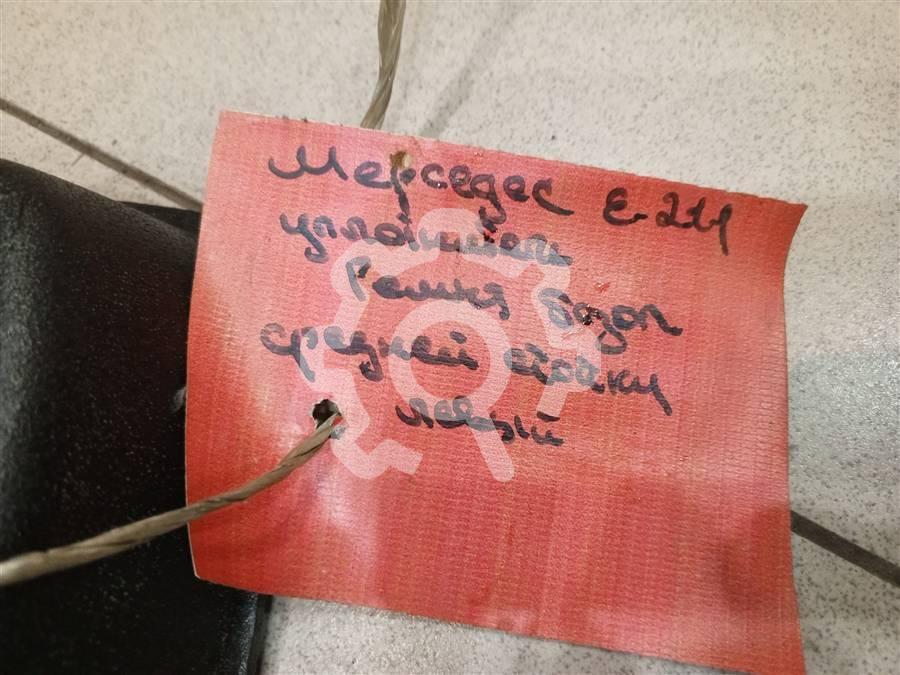 Мерседес Е-211
уплотнитель
Ремня безоп
средней стойки
левый